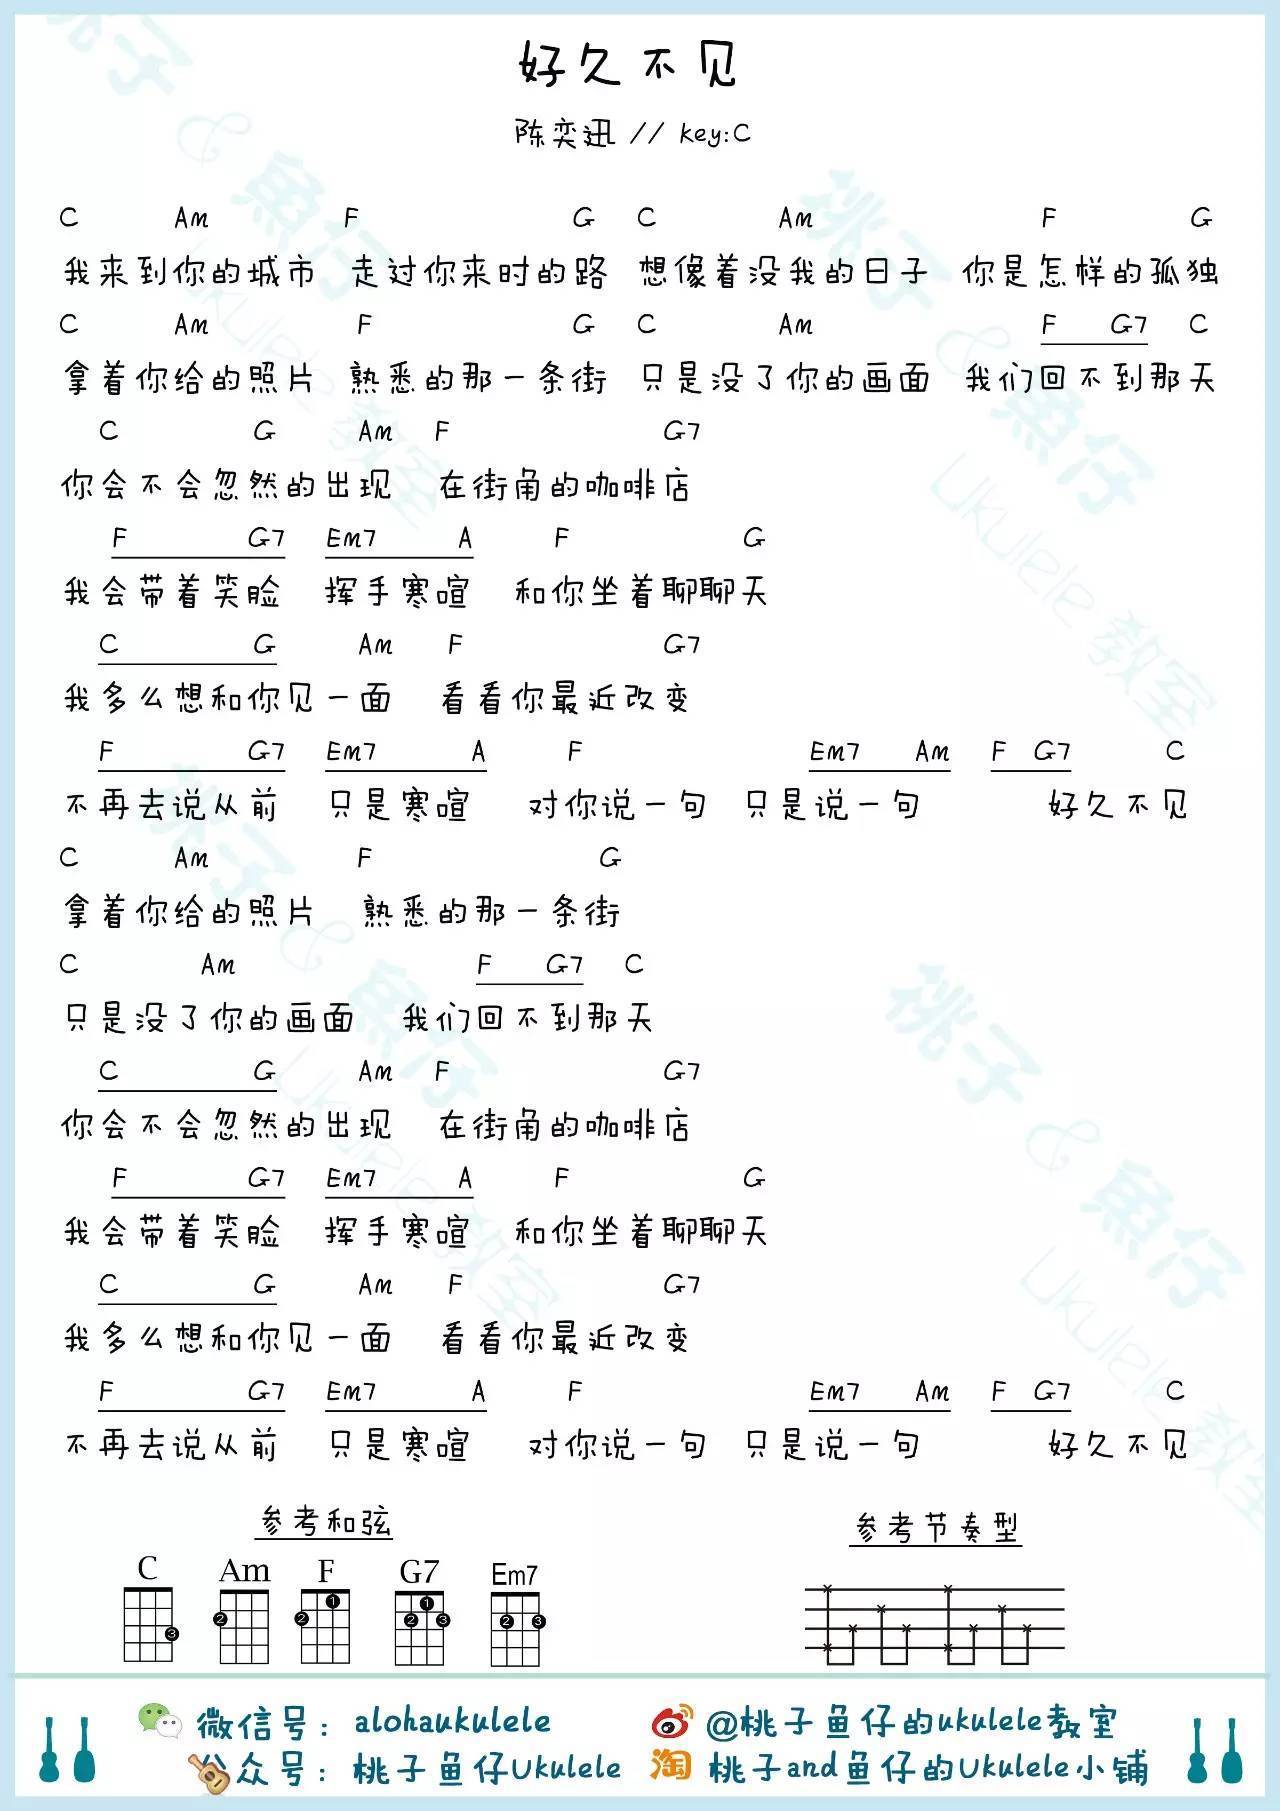 好久不见
陈奕迅 // key:C
C Am F G C Am F G
我来到你的城市 走过你来时的路 想像着没我的日子 你是怎样的孤独
C Am F G C Am F G7 C
拿着你给的照片 熟悉的那一条街 只是没了你的画面 我们回不到那天
C G Am F G7
你会不会忽然的出现 在街角的咖啡店
F G7 Em7 A F G
我会带着笑脸 挥手寒喧 和你坐着聊聊天
C G Am F G7
我多么想和你见一面 看看你最近改变
F G7 Em7 A F Em7 Am F G7 C
不再去说从前 只是寒喧 对你说一句 只是说一句 好久不见
C Am F G
拿着你给的照片 熟悉的那一条街
C Am F G7 C
只是没了你的画面 我们回不到那天
C G Am F G7
你会不会忽然的出现 在街角的咖啡店
F G7 Em7 A F G
我会带着笑脸 挥手寒喧 和你坐着聊聊天
C G Am F G7
我多么想和你见一面 看看你最近改变
F G7 Em7 A F Em7 Am F G7 C
不再去说从前 只是寒喧 对你说一句 只是说一句 好久不见
参考和弦 参考节奏型
C Am F G7 Em7
2 3 1 2 1 2 3 2 3
微信号：alohaukulele @桃子鱼仔的ukulele教室
公众号：桃子鱼仔Ukulele 淘 桃子and鱼仔的Ukulele小铺
桃子&魚仔
Ukulele教室
桃子&魚仔
Ukulele教室
桃子&魚仔
Ukulele教室
桃子&魚仔
Ukulele教室